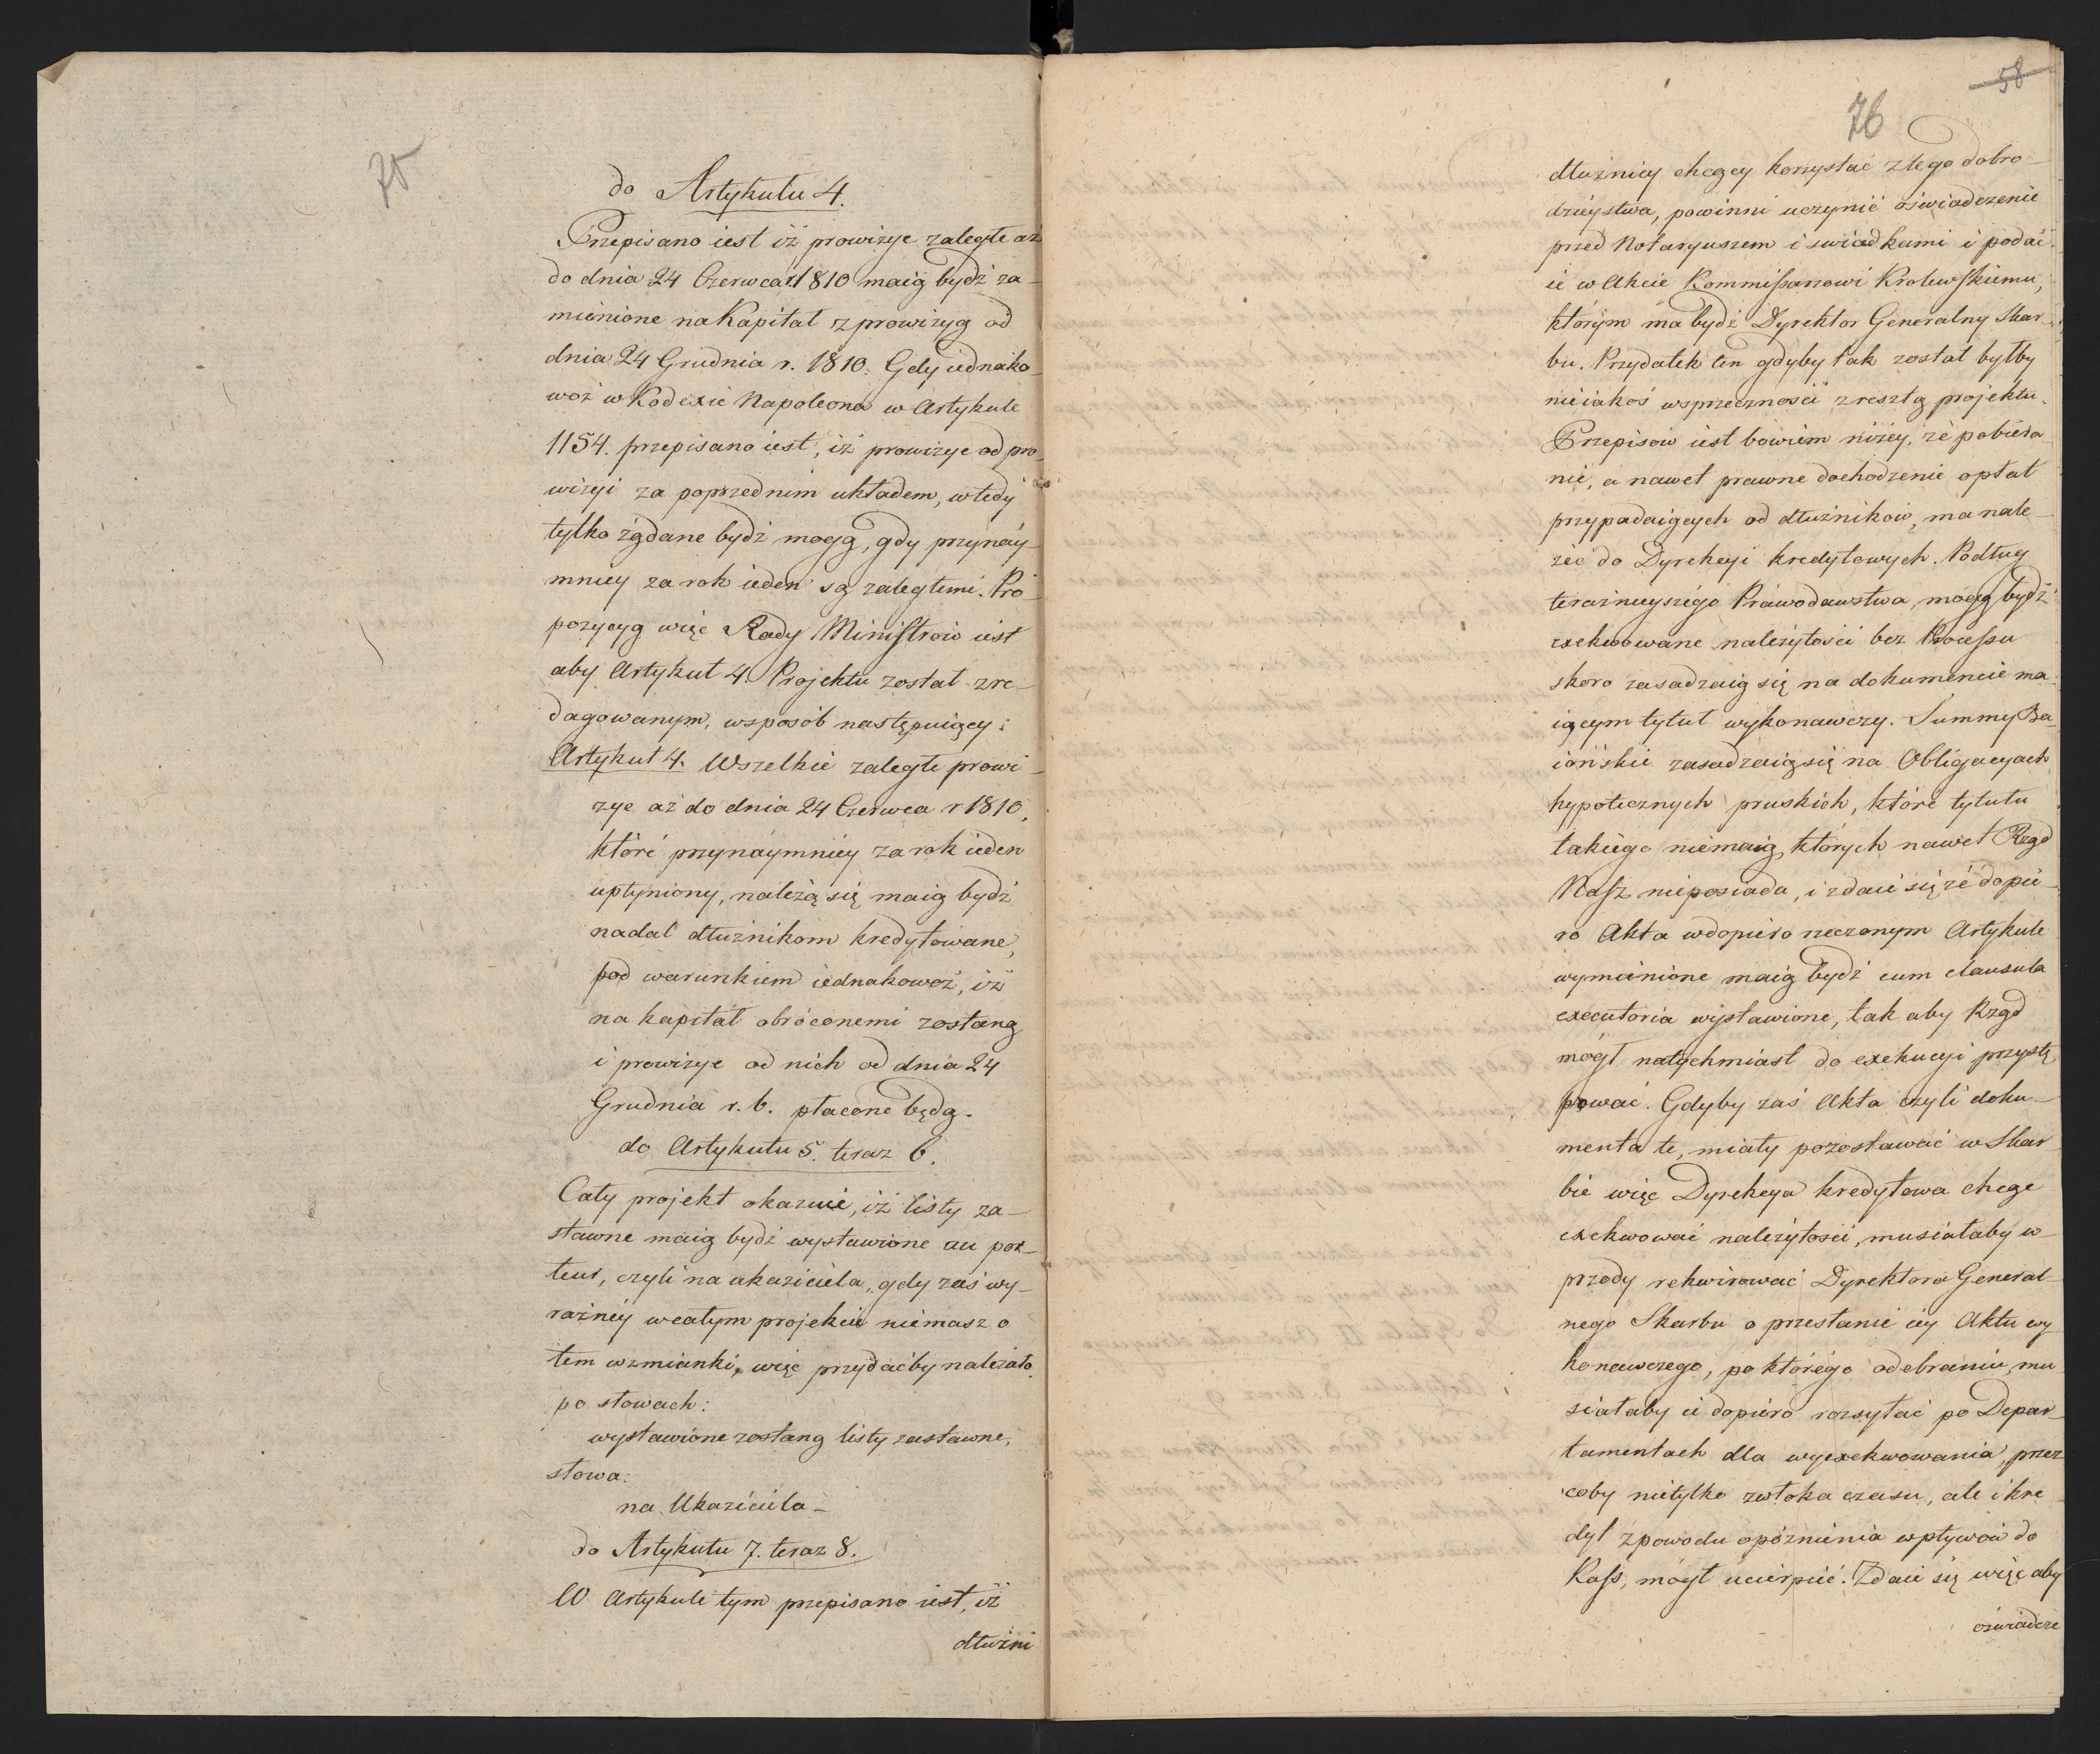 75
do Artykułu 4.
Przepisano iest iż prowizye zaległe aż
do dnia 24 Czerwca r. 1810 maią bydź za-
mienione na Kapitał z prowizyą od
dnia 24 Grudnia r. 1810. Gdy iednako-
woż w Kodexie Napoleona w Artykule
1154. przepisano iest, iż prowizye od pro-
wizyi za poprzednim układem, wtedy
tylko żądane bydź mogą, gdy przynay-
mniey za rok ieden są zaległemi. Pro-
pozycyą więc Rady Ministrów iest
aby Artykuł 4. Projektu został zre-
dagowanym, wsposób następuiący:
Artykuł 4. Wszelkie zaległe prowi-
zye aż do dnia 24 Czerwca r 1810,
które przynaymniey za rok ieden
upłyniony, należą się maią bydź
nadal dłużnikom kredytowane,
pod warunkiem iednakowoż, iż
na kapitał obróconemi zostaną
i prowizye od nich od dnia 24
Grudnia r. b. płacone będą.
do Artykułu 5. teraz 6.
Cały projekt okazuie, iż listy za-
stawne maią bydź wystawione au por-
teur, czyli na ukaziciela, gdy zaś wy-
raźniey w całym projekcie niemasz o
tem wzmianki, więc przydaćby należało
po słowach:
wystawione zostaną listy zastawne,
słowa:
na Ukaziciela -
do Artykułu 7. teraz 8.
W Artykule tym przepisano iest, iż
dłużni
58
76
dłużnicy chcący korzystać z tego dobro-
dzieystwa, powinni uczynić oświadczenie
przed Notaryuszem i swiadkami i podać
ie w Akcie Kommissarzowi Krolewskiemu,
którym ma bydź Dyrektor Generalny Skar-
bu. Przydatek ten gdyby tak został byłby
nieiakoś wsprzeczności z resztą projektu.
Przepisów iest bowiem niżey, że pobiera-
nie, a nawet prawne dochodzenie opłat
przypadaiących od dłużników, ma nale-
żeć do Dyrekcyi kredytowych. Podług
teraźnieyszego Prawodawstwa, mogą bydź
exekwowane należytości bez Processu
skoro zasadzaią się na dokumencie ma-
iącym tytuł wykonawczy. Summy Ba-
iońskie zasadzaią się na Obligacyach
hypotecznych pruskich, które tytułu
takiego niemaią, których nawet Rząd
Nasz nieposiada, i zdaie się że dopie-
ro Akta w dopiero rzeczonym Artykule
wymienione maią bydź cum clausula
executoria wystawione, tak aby Rząd
mógł natychmiast do exekucyi przystę-
pować. Gdyby zaś Akta czyli doku-
menta te, miały pozostawać w Skar-
bie więc Dyrekcya kredytowa chcąc
exekwować należytości, musiałaby w-
przódy rekwirować Dyrektora General-
nego Skarbu o przesłanie iey Aktu wy-
konawczego, po którego odebraniu, mu-
siałaby ie dopiero rozsyłać po Depar-
tamentach dla wyexekwowania, przez
coby nietylko zwłoka czasu, ale i kre-
dyt z powodu opóźnienia wpływów do
Kass, mógł ucierpieć. Zdaie się więc aby
oświadcze